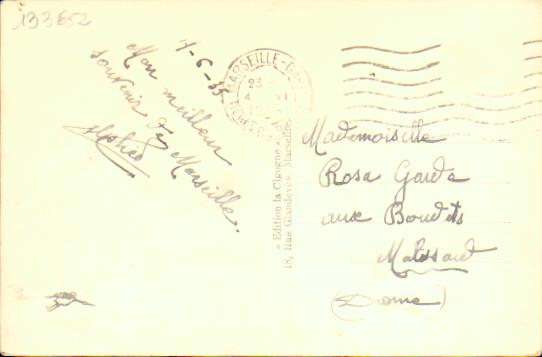 133652
4-6-35
Mon meilleur
souvenir de Marseille.
MARSEILLE-GARE
23
4
« Edition la Cigogne »
18, Rue Glandevès Marseille
Mademoiselle
Rosa Garde
aux Boudets
Malissard
(Drome)